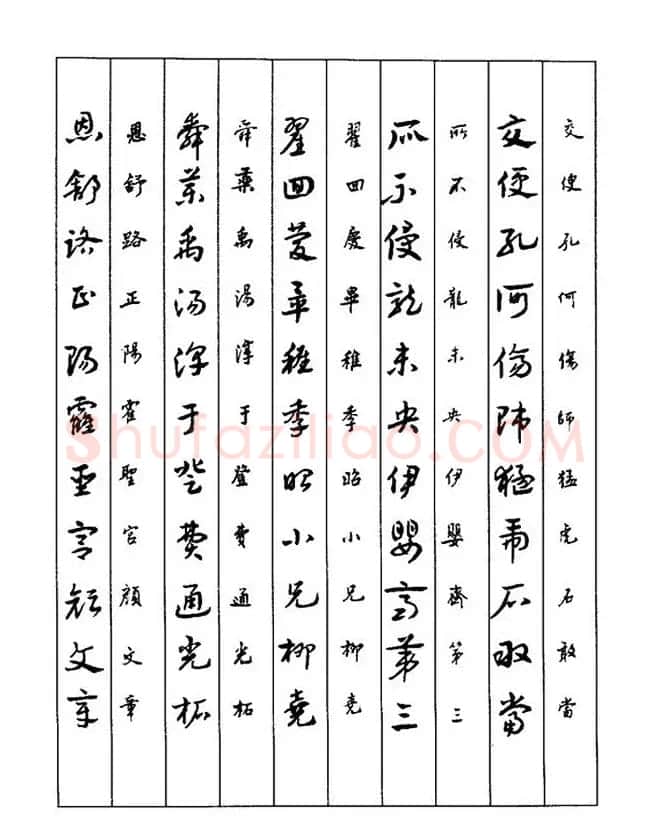 交便孔何傷師猛虎石敢當
交便孔何傷師猛虎石敢當
所不侵龍未央伊嬰齊第三
所不侵龍未央伊嬰齊第三
翟回慶畢稚季昭小兄柳堯
翟回慶畢稚季昭小兄柳堯
舜藥禹湯淳于登費通光柘
舜藥禹湯淳于登費通光柘
恩舒路正陽霍聖宮顏文章
恩舒路正陽霍聖宮顏文章
Shufaziliao.COM